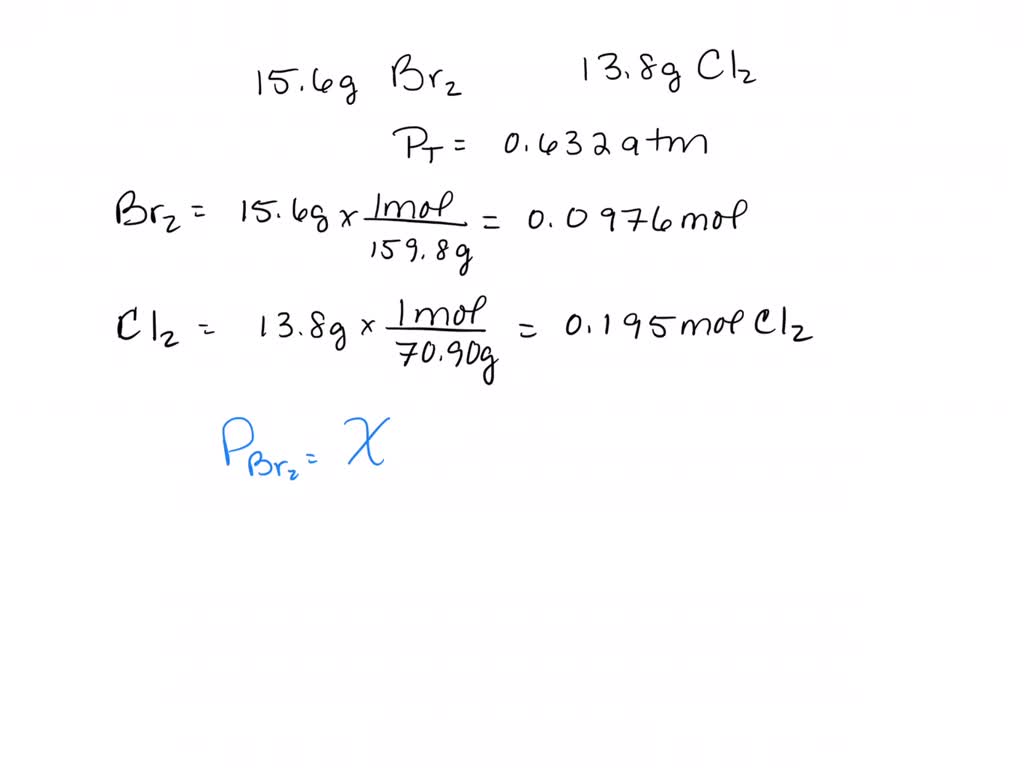 15.6g Br₂ 13.8g Cl₂
P_T = 0.632 atm
Br₂ = 15.6g x 1mol/159.8g = 0.0976 mol
Cl₂ = 13.8g x 1mol/70.90g = 0.195 mol Cl₂
P_Br₂ = X